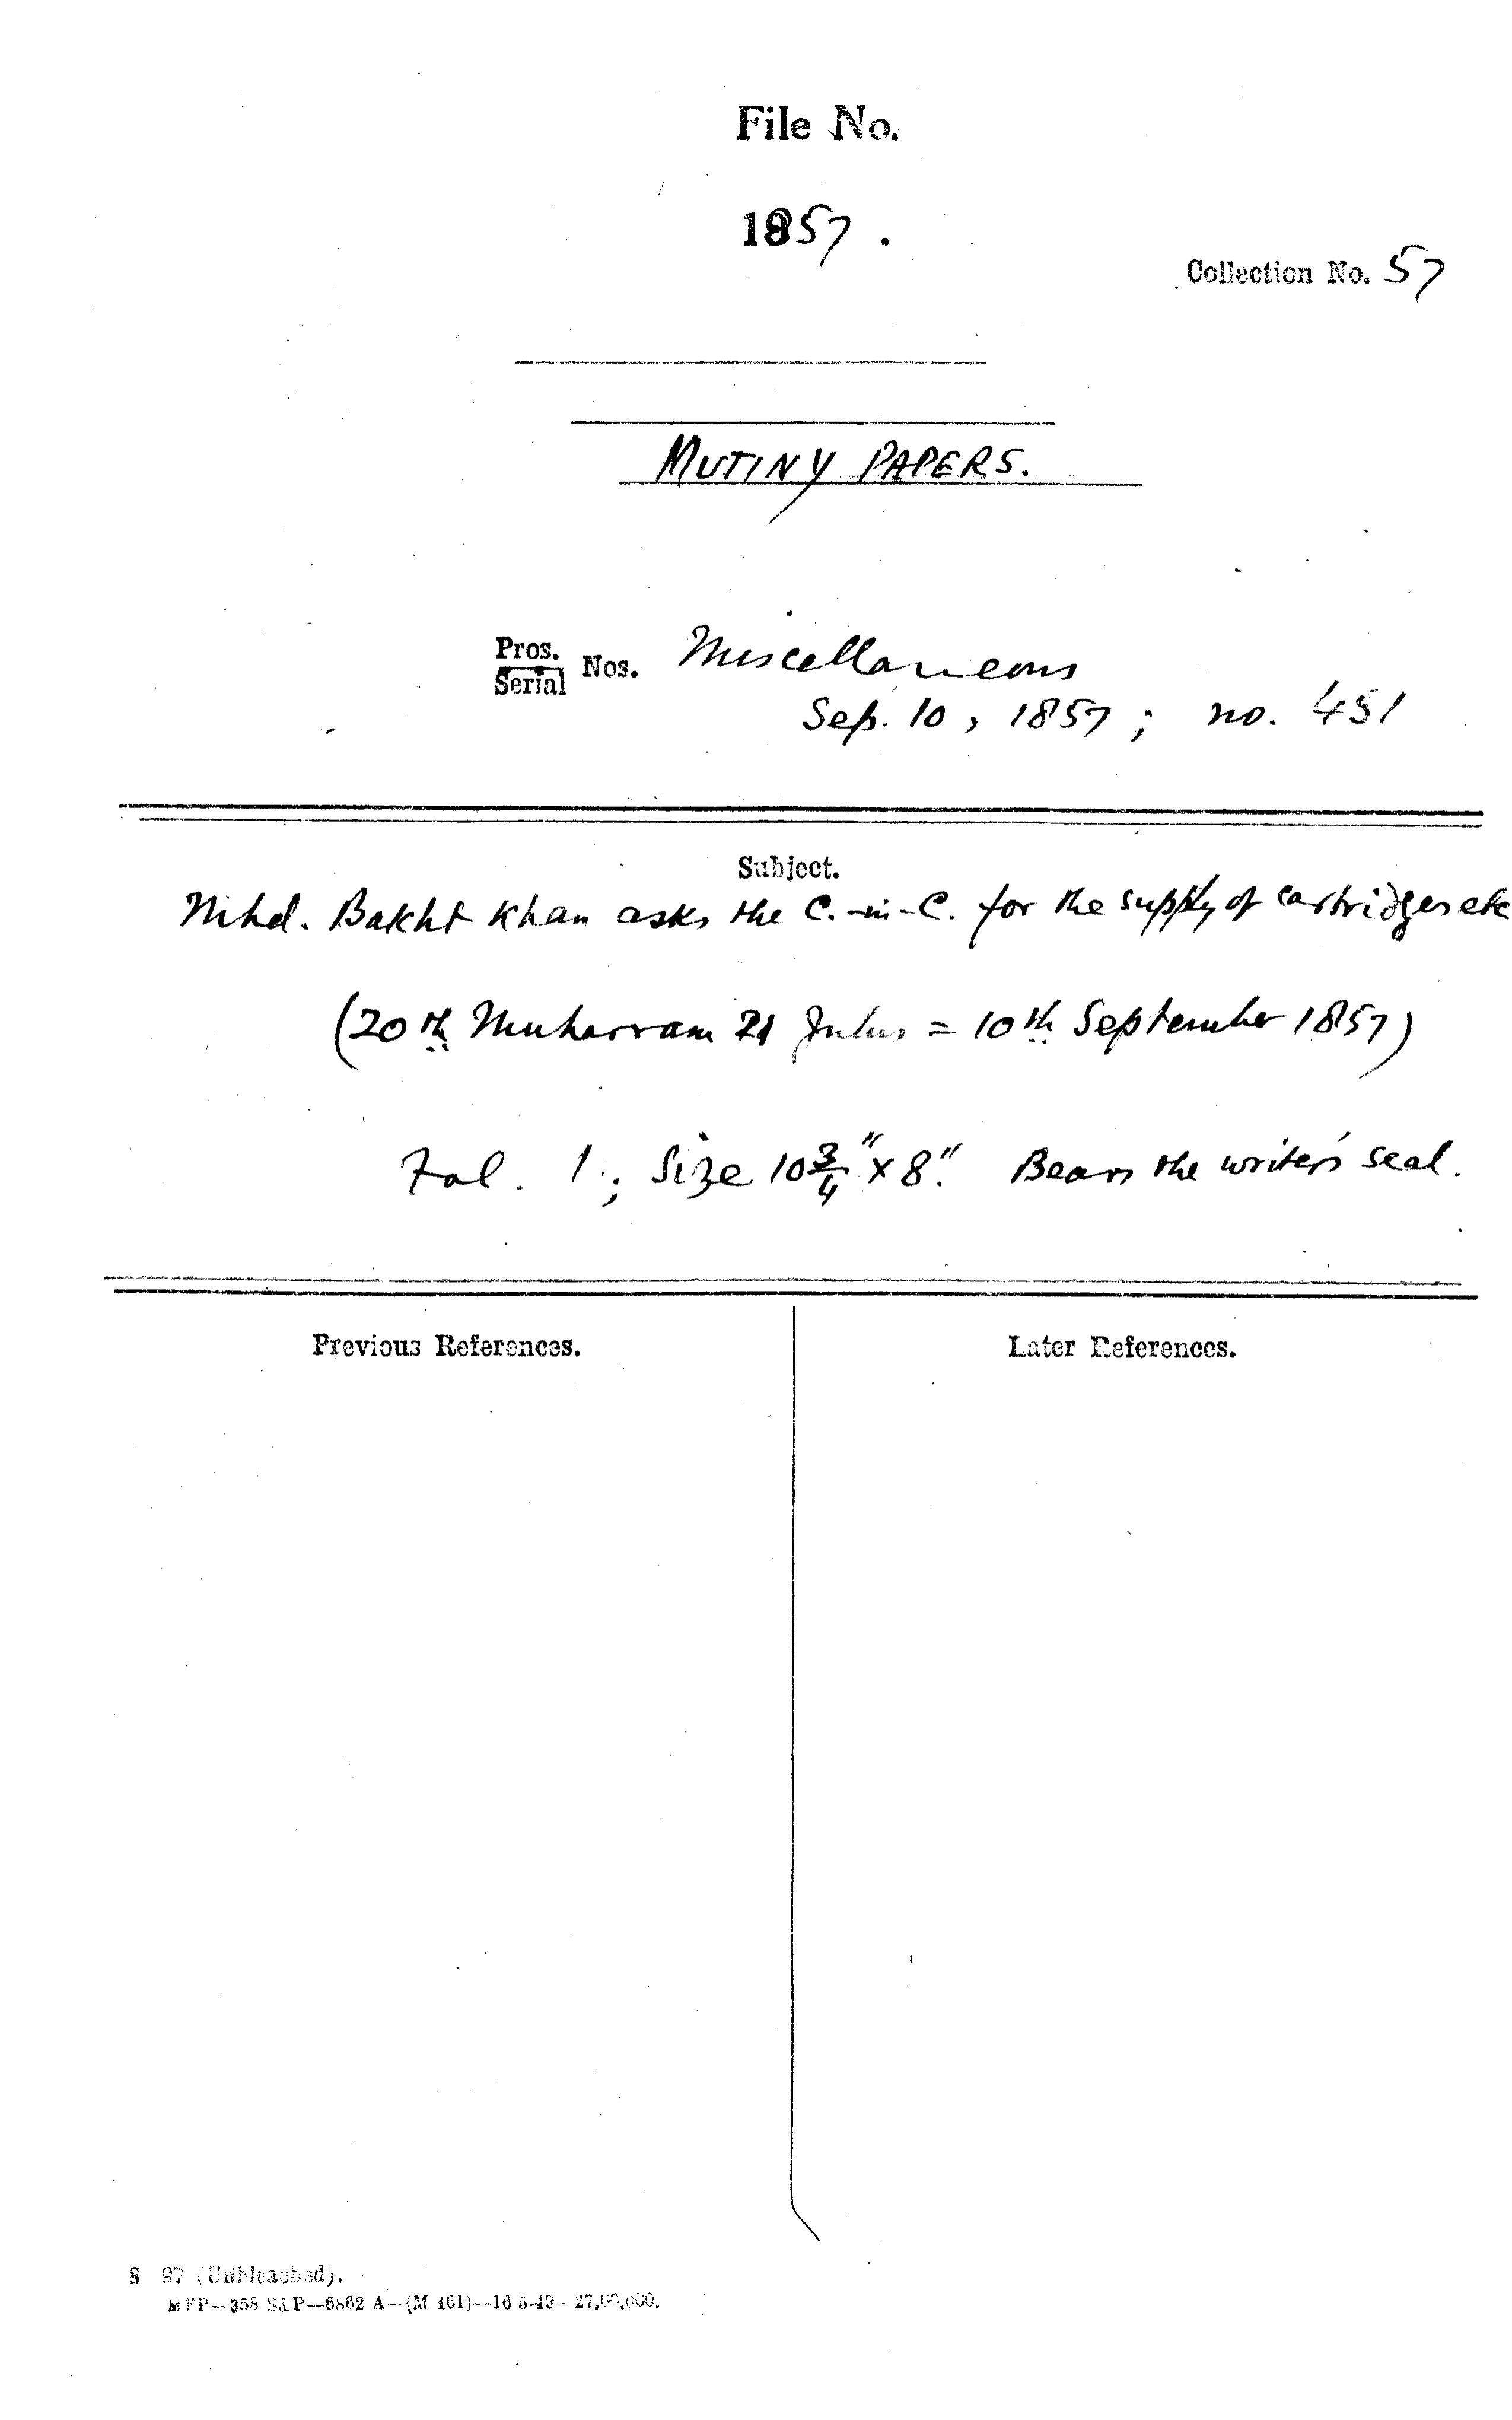 File No.
1857.
Collection No. 57
MUTINY PAPERS.
Pros.
Serial Nos. Miscellaneous
Sep. 10, 1857; no. 451
Subject.
Mhd. Bakht Khan asks the C.-in-C. for the supply of cartridges etc
(20th Muharram 21 Julus = 10th September 1857)
Fol. 1; Size 10 3/4" x 8". Bears the writer's seal.
Previous References.
Later References.
S 97 (Unbleached).
MFP—358 S&P—6862 A—(M 461)—16-5-49—27,00,000.